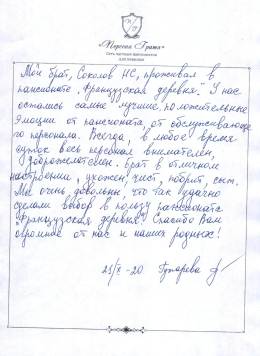 «Персона Грата»
Сеть частных пансионатов
для пожилых
Мой брат, Соколов НС, проживал в
пансионате „Французская деревня." У нас
остались самые лучшие, положительные
эмоции от пансионата, от обслуживающе-
го персонала. Всегда, в любое время
суток весь персонал внимателен,
доброжелателен. Брат в отличном
настроении, ухожен, чист, побрит, сыт.
Мы очень довольны, что так удачно
сделали выбор в пользу пансионата
„Французская деревня"! Спасибо Вам
огромное от нас и наших родных!
21/X -20